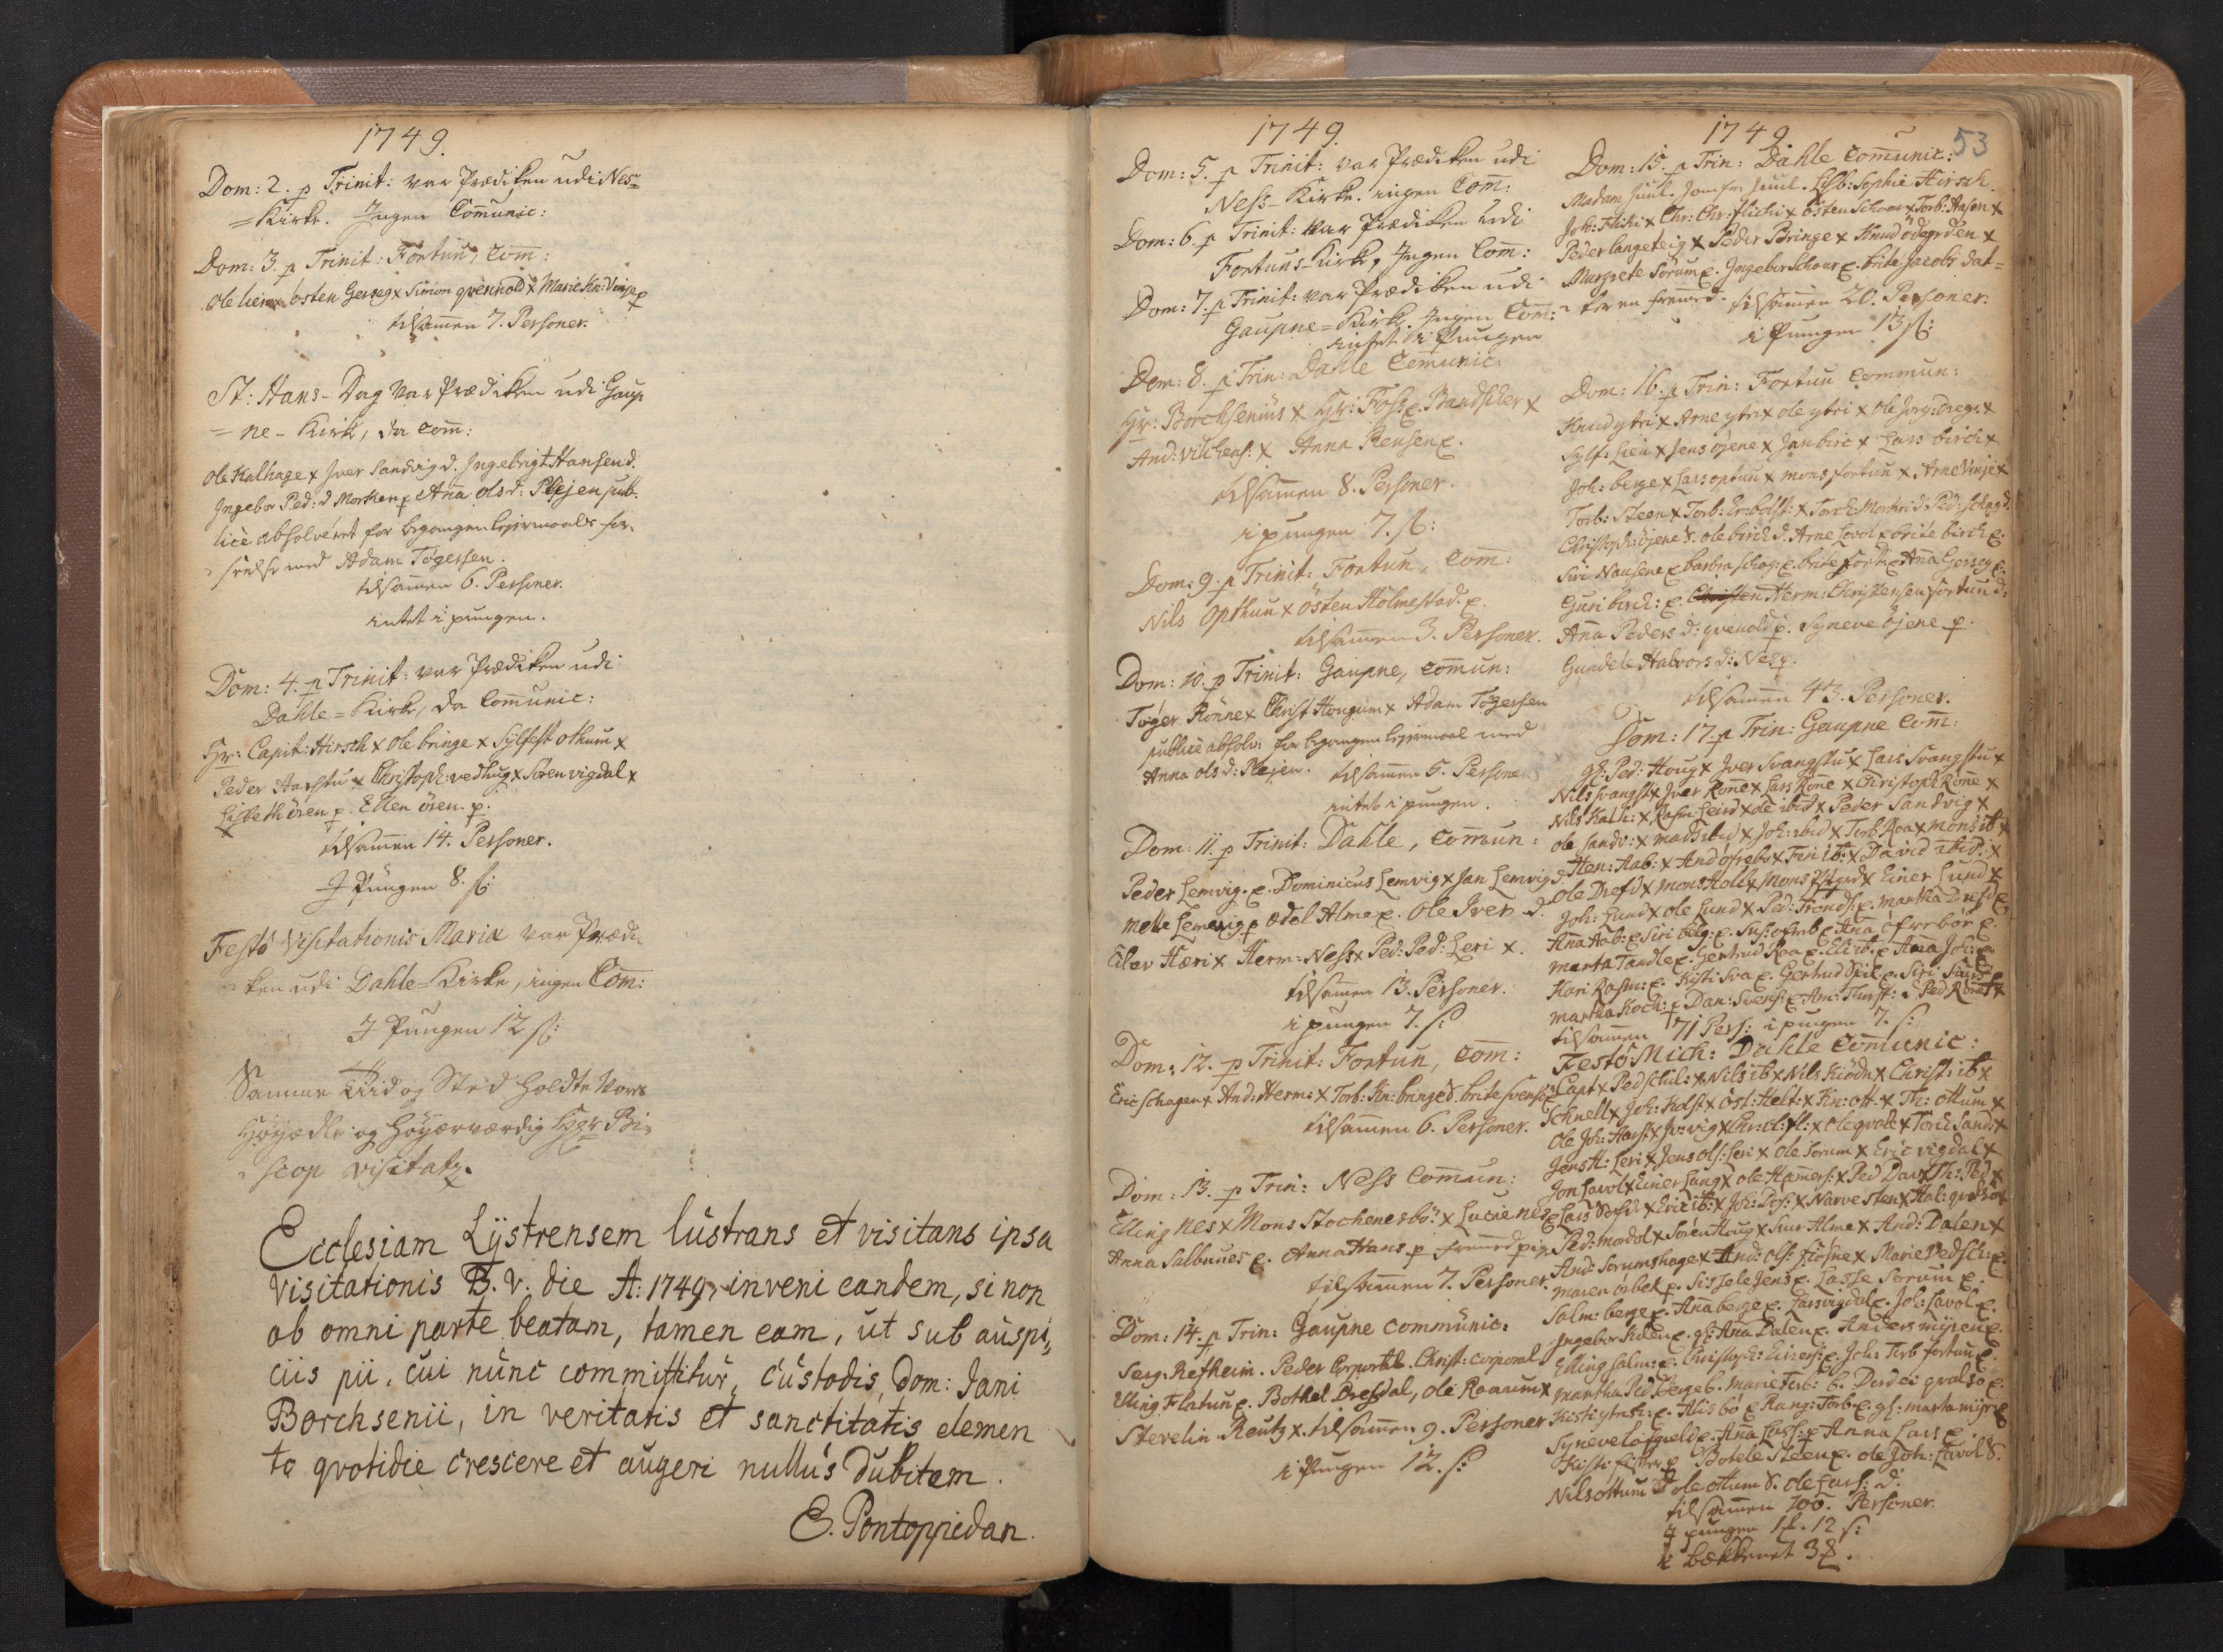 1749.
Dom: 2. p Trinit: var Prædiken udi Nes=
=Kirke. Ingen Com̄unic:
Dom: 3. p Trinit: Fortun, Com̄:
Ole lien x østen Gerseg x Simon qvennold x Marie Kn: Vinje p
tilsam̄en 7. Personer.
St: Hans-Dag var Prædiken udi Gaup
=ne-Kirke, da Com̄:
Ole Kalhage x Iver Sandvig d. Ingebrigt Hansen d.
Ingebor Ped: d Morken p Aña ols d: Plejen pub-
lice absolveret for begangen lejermaals for-
seelse med Adam Tøgersen.
tilsam̄en 6. Personer.
intet i pungen.
Dom: 4. p Trinit: var Prædiken udi
Dahle=Kirke, da Com̄unic:
Hr: Capit: Hirsch x Ole bringe x Sylfest othum x
Peder x Christoph: vedhug x Søren vigdal x
Lisbeth øren p. Ellen øren. p.
tilsam̄en 14. Personer.
I Pungen 8. s:
Festo Visitationis Mariæ var Prædi-
ken udi Dahle=Kirke, ingen Com̄:
I Pungen 12 s:
Samme Tid og Sted holdte Vores
Høyædle og Høyærværdig Hgr Bi-
scop visitatz.
Ecclesiam Lystrensem lustrans et visitans ipsa
visitationis B. V. die A: 1749, inveni eandem, si non
ab omni parte beatam, tamen eam, ut sub auspi-
ciis pii, cui nunc committitur, custodis, Dom: Jani
Borchsenii, in veritatis et sanctitatis elemen
ta qvotidie crescere et augeri nullus dubitem.
E. Pontoppidan.
1749.
Dom: 5. p Trinit: var Prædiken udi
Ness-Kirke. ingen Com̄:
Dom: 6. p Trinit: var Prædiken udi
Fortuns-Kirke, Ingen Com̄:
Dom: 7. p Trinit: var Prædiken udi
Gaupne=Kirke. Ingen Com̄:
intet i Pungen
Dom: 8. p Trin: Dahle Com̄unic:
Hr: Borchsenius x Hr: Foss p. x
And: Vilchens: x Anna Rensen p.
tilsam̄en 8. Personer.
i pungen 7. s:
Dom: 9. p Trinit: Fortun, Com̄:
Nils Opthun x østen Holmestad. p.
tilsam̄en 3. Personer.
Dom: 10. p Trinit: Gaupne, Com̄un:
Tøger Rönne x Christ Hougum x Adam Tøgersen
publice absolv: for begangen lejermaal med
Anna ols d: Plejen. tilsam̄en 5. Personer
intet i pungen.
Dom: 11. p Trinit: Dahle, Com̄un:
Peder Lemvig. p. Dominicus Lemvig x Jan Lemvig d.
Mette Lemvig p ædel Alme p. Ole Iven d.
Eilev Hæri x Herm: Ness x Ped: Ped: Leri x.
tilsam̄en 13. Personer.
i pungen 7. s:
Dom: 12. p Trinit: Fortun, Com̄:
Eric Schagen x And: Herm: x Torb: Kn: bringe d. brite Svens p
tilsam̄en 6. Personer.
Dom: 13. p Trin: Ness Com̄un:
Elling Nes x Mons Stochenesbö x Lucie nes p
Anna Salbunes p. Anna Hans p fremmed pig.
tilsam̄en 7. Personer.
Dom: 14. p Trin: Gaupne communic:
Serg: Refheim. Peder Corporal. Christ: Corporal
Elling Flatun p. Bothel Dresdal, Ole Roarum x
Stevelin Reutz x. tilsam̄en 9. Personer
i Pungen 12. s:
1749.
53
Dom: 15. p Trin: Dahle Com̄unic:
Madam Juul. Jomfr Juul. Lisb: Sophie Hirsch.
Joh: x Chr: Chr: x østen Schaar x Torb: Hasen x
Peder langeteig x Peder Bringe x Knud ödegrden x
Margrete Sørum p. Ingebor Schaar p. brite Jacobs dat-
ter en frem̄ed. tilsam̄en 20. Personer.
i Pungen 13 s:
Dom: 16. p Trin: Fortun Commun:
Knud ytri x Arne ytri x ole ytri x Ole Jørg: drege x
Sylf: Lien x Jens öjene x Jan birc x Lars birch x
Joh: berge x Lars optun x mons fortun x Arne Vinje x
Torb: Steen x Torb: Er: bolst: x Torch: Morkri d: Ped: schag d.
Christoph: öjene d. ole birch d. Arne Lovol x brite birch p.
Siri Nausene p barbra schog: p. brite fort: p Aña Gerseg p.
Guri birch: p. Herm: Christensen fortun d:
Aña Peders d: qvenold p. Syneve öjene p.
Gundele Halvors d: Nes p.
tilsam̄en 43. Personer.
Dom: 17. p Trin: Gaupne Com̄:
gl: Ped: Houg x Iver Svangstu x Lars Svangstu x
Nils Svangst x Iver Röne x Lars Röne x Christoph Röne x
Nils Kalh: x Rasm: Leird x ole ibid x Peder Sandvig x
Ole Sandv: x mads ibid x Joh: ibid x Torb Roa x mons ib x
Hen: Aab: x And öfrebo x Fen ib: x David ibid: x
Ole Drefd x mons Holl x Mons x Einer Lund x
Joh: Lund x ole Lund x Ped: Fronds: p. martha p
Aña Aab: p Siri bolg: p. Sus: öfreb p Aña öfrebör p.
Marta Tandle p. Gertrud Roa p. Eli ib: p Aña Joh: p
Kari Rasm: p. Kisti Sva p. Gertrud Spil p. Siri
Martha Koch: p Dan: Svens: p An: Thorst: d Ped Röne x
tilsam̄en 71 Pers: i pungen 7. s:
Festo Mich: Dahle Com̄unic:
Capt x Ped schul: x Nils ib x Nils Kiödn x Christ: ib x
Schnell x Joh: Kolst x Ost: Helt: x Kn: ott: x Th: ottum x
ole qvale x Torch Sand: x
Jens H: Leri x Jens ols: Leri x Ole Sorum x Eric vigdal x
Jon Lavol x Einer Lang x ole Ham̄ers: x Ped
Lars x Eric ib: x Joh: x Narve sten x Hal: qvalsö x
Ped: mordol x Søren Houg x Siur Alme x And: Dalen x
And: Sorumshage x And: ols: fiösne x Marie Vedsch: p.
maren örbek p. Sissele Jens p. Lasse Sorum p.
Salm: berge p. Aña berge p. Lars vigdal p. Joh: Lavol p.
Ingebor Kilen p. gl: Aña Dalen p. Anders myren p.
Elling Salm: p. Christoph: Einers: p. Joh: Torb fortun p.
Martha Ped berge b. marie Torb: b. Dordei qvalsö p.
Kisti ytrek: p. Alis bö p Rang: Torb: p. gl: marta myr p
Syneve p. Aña Lars: p Anna Lars p.
Kisti p Botele Steen p. ole Joh: Lavol d.
Nils ottum d ole ottum d. ole Lars: d.
tilsam̄en 100. Personer.
I pungen 1 f. 12 s:
i Bekkenet 3 f.